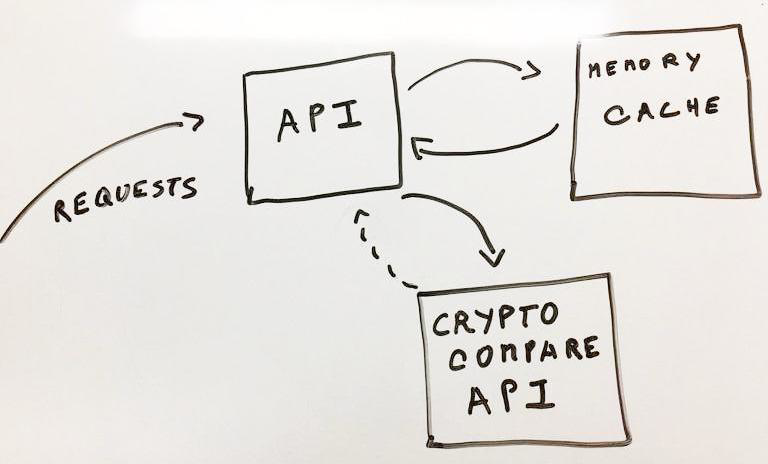 REQUESTS
API
MEMORY
CACHE
CRYPTO
COMPARE
API